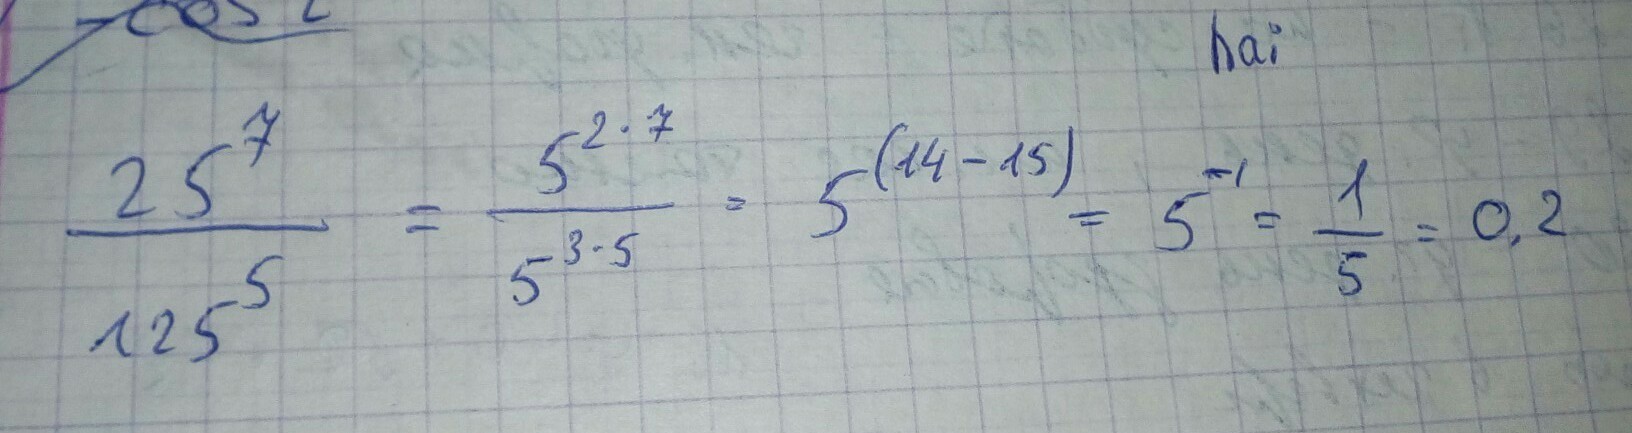 hai
25^7 / 125^5 = 5^{2·7} / 5^{3·5} = 5^{(14-15)} = 5^{-1} = 1/5 = 0,2